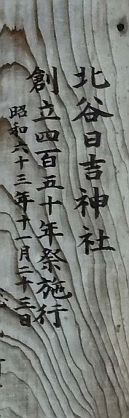 北谷日吉神社
創立四百五十年祭施行
昭和六十三年十一月二十三日